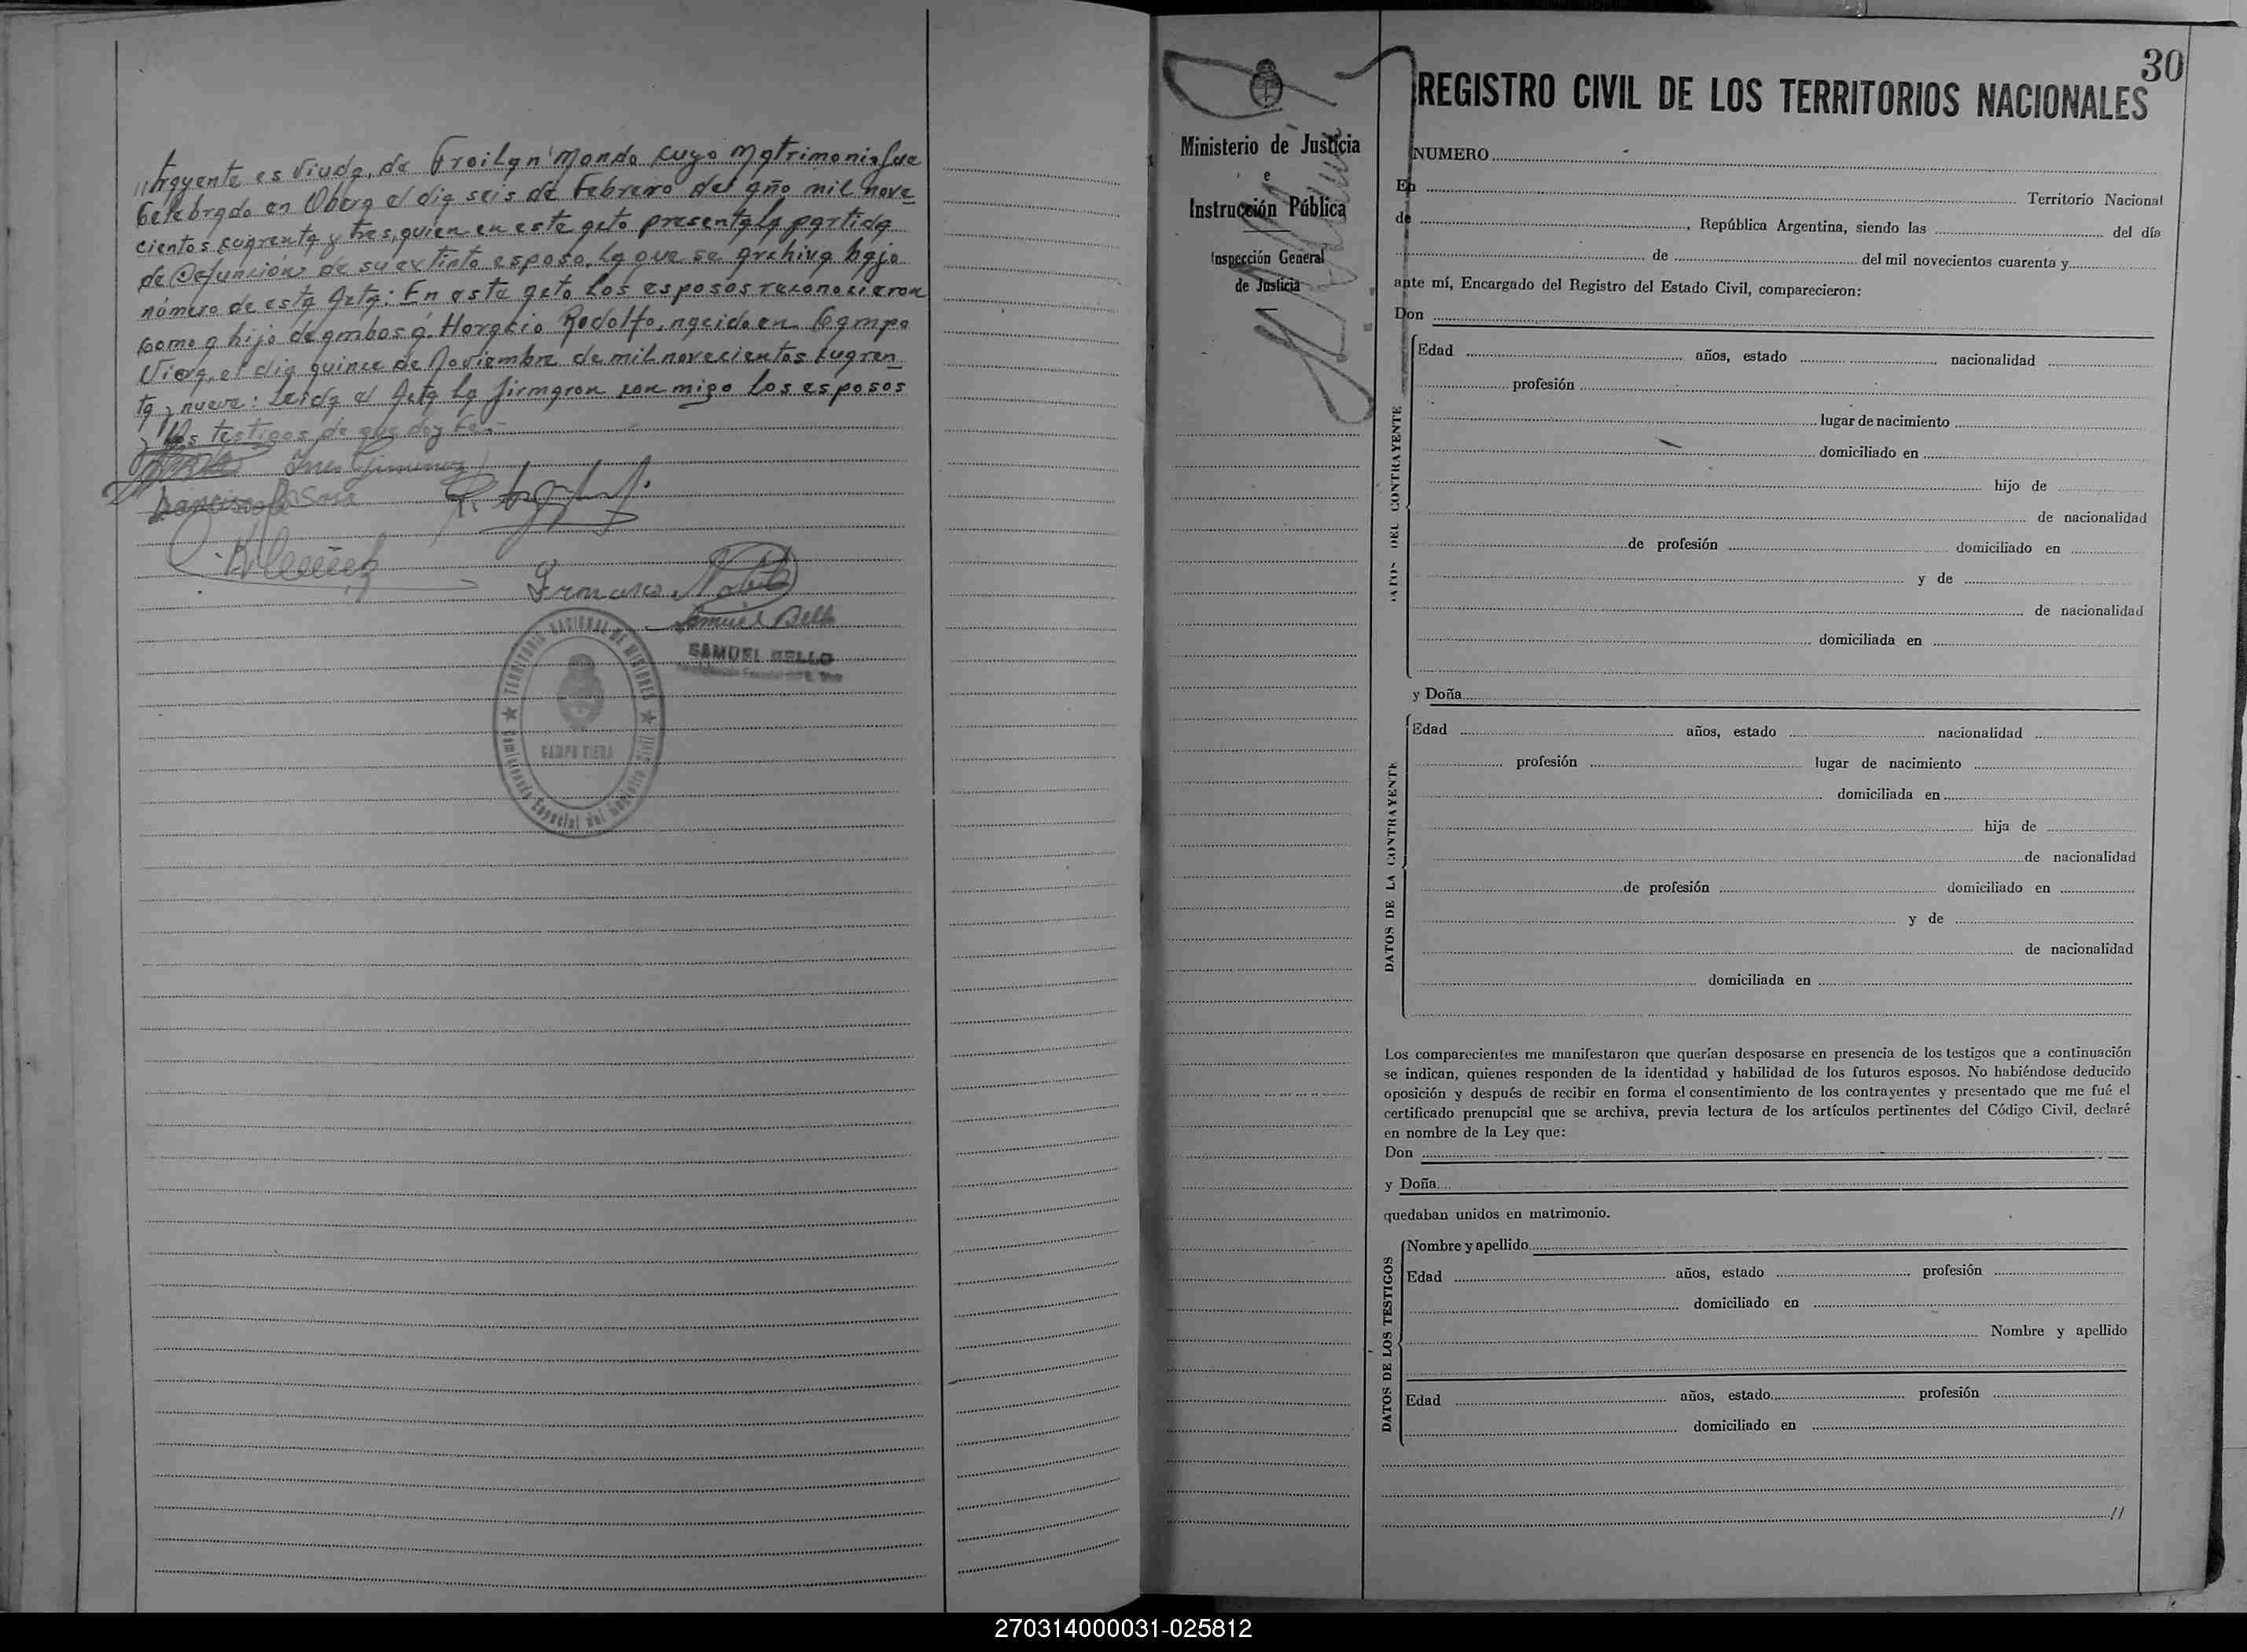 //trayente es viuda, de Froilan Mando cuyo Matrimonio fue
Celebrado en Obera el dia seis de Febrero del año mil nove
cientos cuarenta y tres, quien en este acto presenta la partida
de Defunción de su extinto esposo, la que se archiva bajo
número de esta Acta: En este acto los esposos reconocieron
como a hijo de ambos á. Horacio Rodolfo, nacido en Campo
Viera, el dia quince de Noviembre de mil novecientos cuaren
ta y nueve: Leida el Acta la firmaron con migo los esposos
y los testigos de que doy Fe.-
Ines Gimenez
Francisco Sosa
Francisco
Samuel Bello
SAMUEL BELLO
TERRITORIO NACIONAL DE MISIONES
CAMPO VIERA
Comisionado Especial del Registro Civil
30
Ministerio de Justicia
e
Instrucción Pública
Inspección General
de Justicia
REGISTRO CIVIL DE LOS TERRITORIOS NACIONALES
NUMERO
En Territorio Nacional
de , República Argentina, siendo las del día
de del mil novecientos cuarenta y
ante mí, Encargado del Registro del Estado Civil, comparecieron:
Don
DATOS DEL CONTRAYENTE
Edad años, estado nacionalidad
profesión
lugar de nacimiento
domiciliado en
hijo de
de nacionalidad
de profesión domiciliado en
y de
de nacionalidad
domiciliada en
y Doña
DATOS DE LA CONTRAYENTE
Edad años, estado nacionalidad
profesión lugar de nacimiento
domiciliada en
hija de
de nacionalidad
de profesión domiciliado en
y de
de nacionalidad
domiciliada en
Los comparecientes me manifestaron que querían desposarse en presencia de los testigos que a continuación
se indican, quienes responden de la identidad y habilidad de los futuros esposos. No habiéndose deducido
oposición y después de recibir en forma el consentimiento de los contrayentes y presentado que me fué el
certificado prenupcial que se archiva, previa lectura de los artículos pertinentes del Código Civil, declaré
en nombre de la Ley que:
Don
y Doña
quedaban unidos en matrimonio.
DATOS DE LOS TESTIGOS
Nombre y apellido
Edad años, estado profesión
domiciliado en
Nombre y apellido
Edad años, estado profesión
domiciliado en
//
270314000031-025812